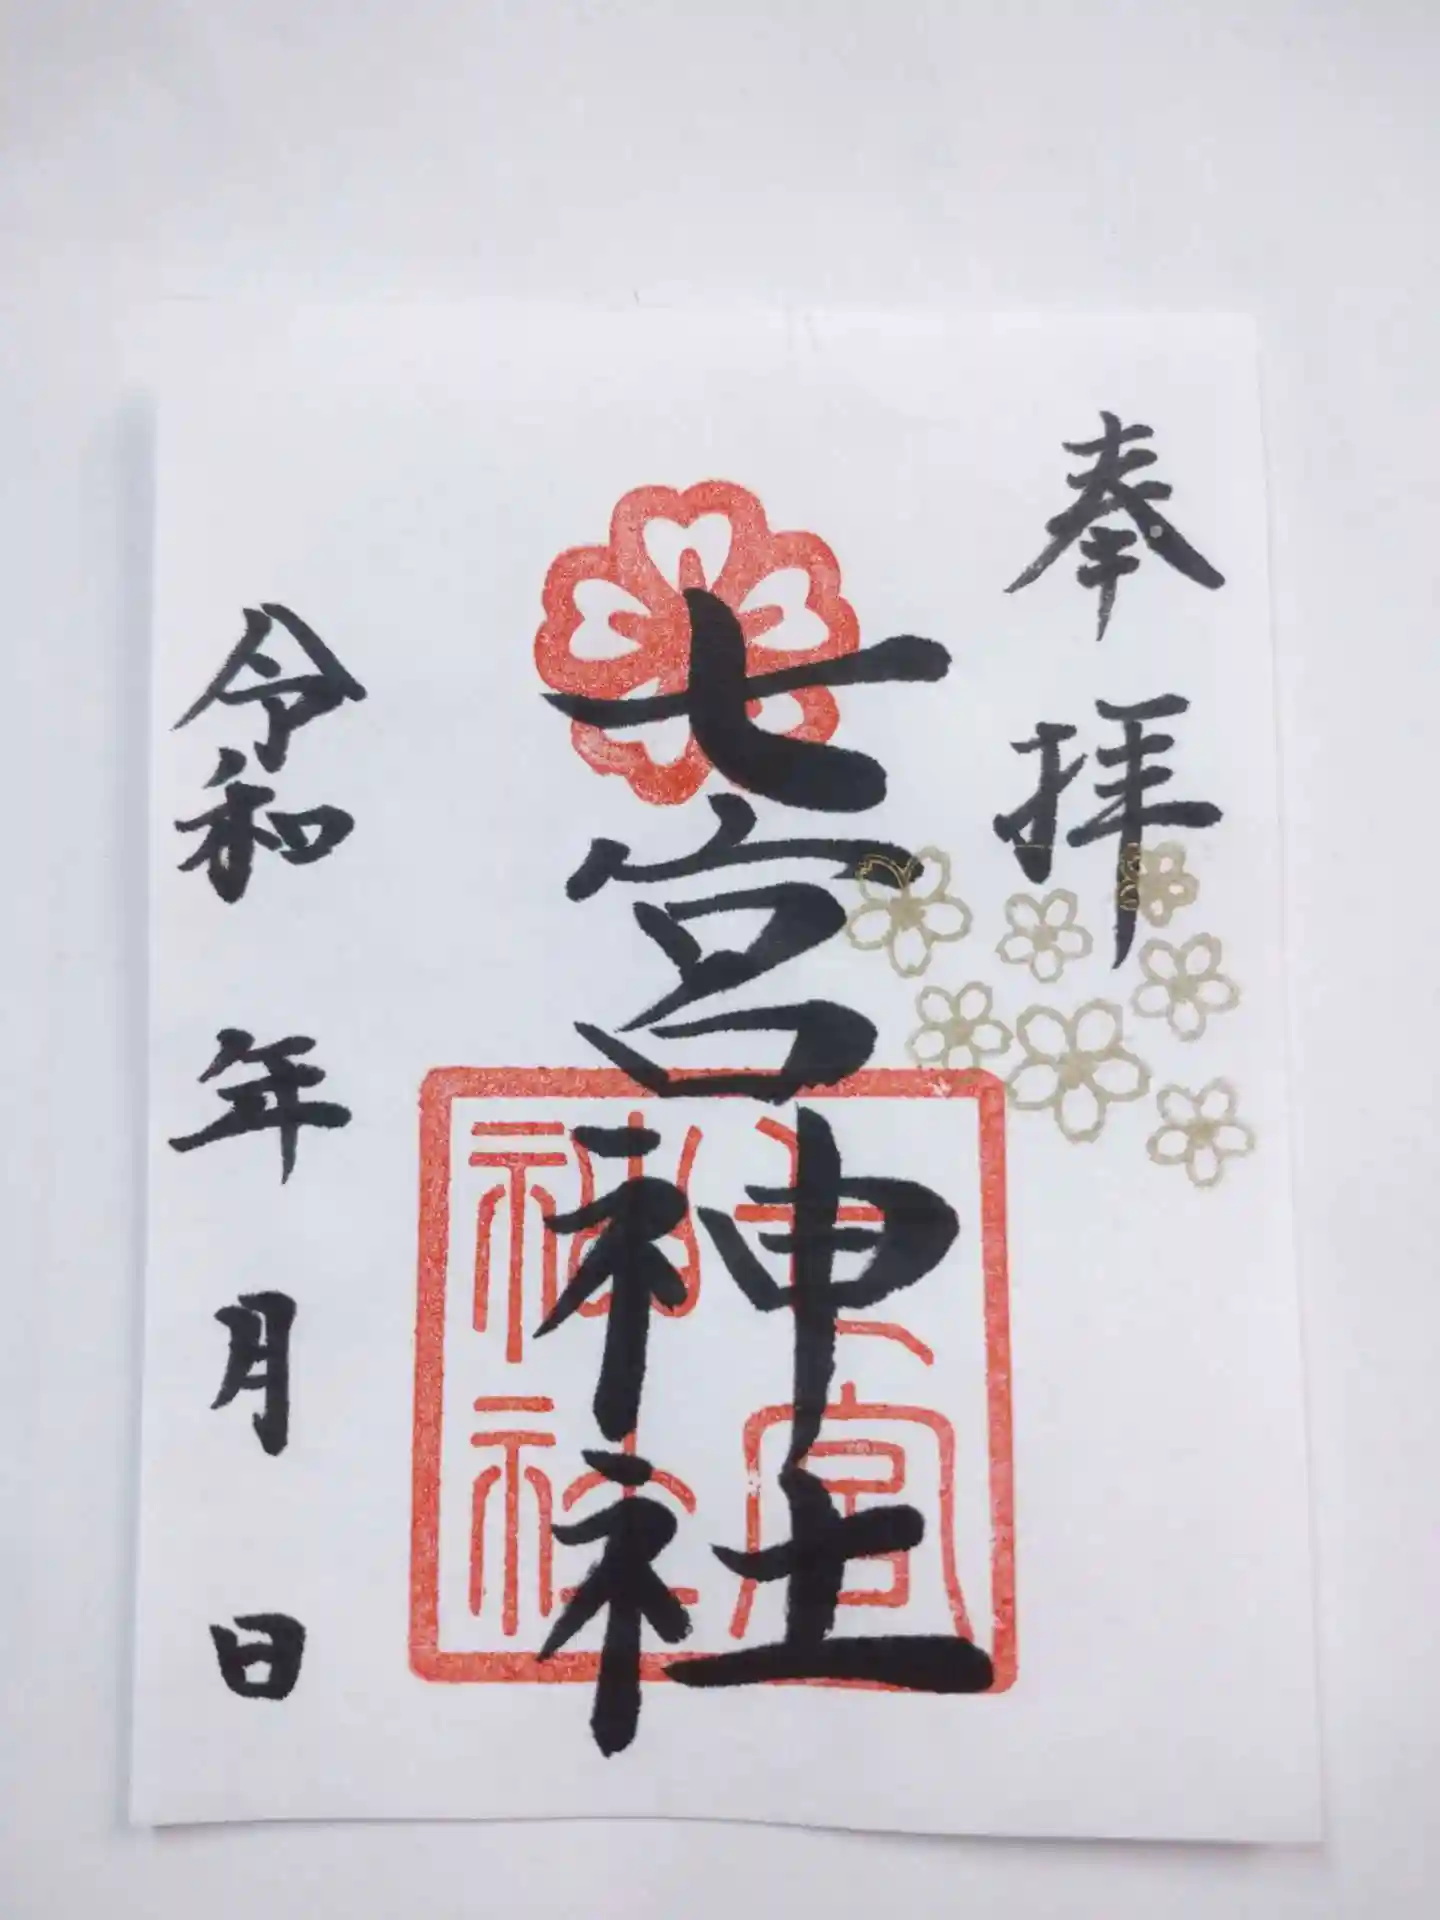 奉拝
七宮神社
七宮
神社
令和 年 月 日